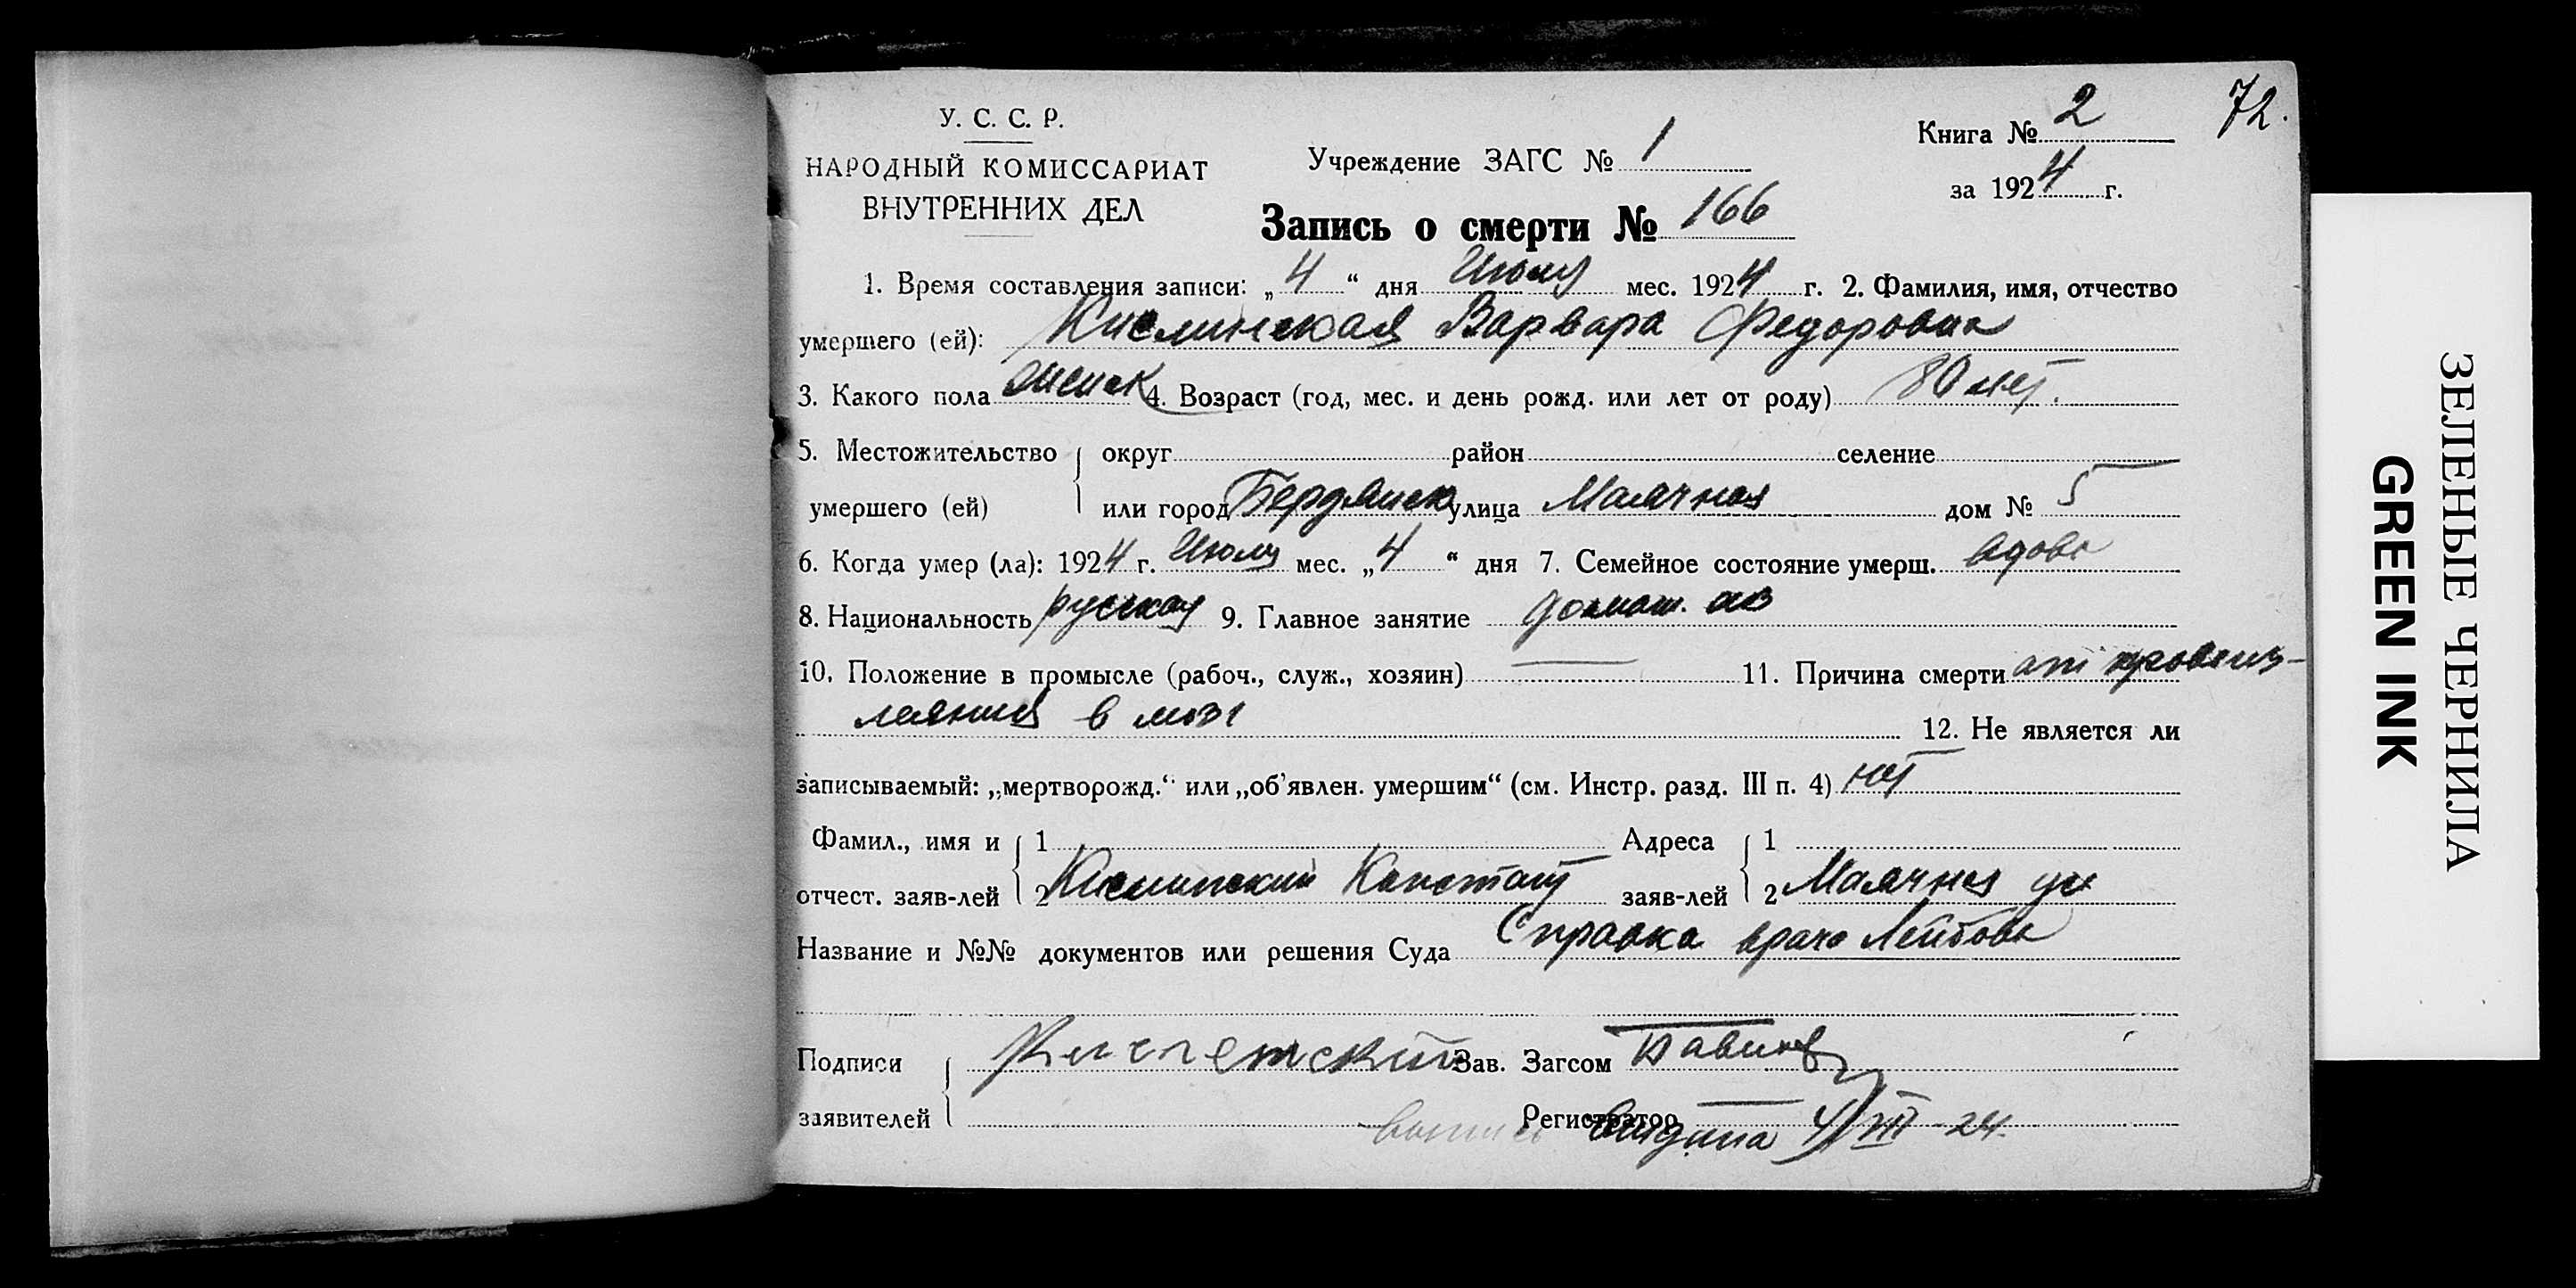 72.
У. С. С. Р.
НАРОДНЫЙ КОМИССАРИАТ
ВНУТРЕННИХ ДЕЛ
Учреждение ЗАГС № 1
Книга № 2
за 1924 г.
Запись о смерти № 166
1. Время составления записи: „4“ дня Июля мес. 1924 г. 2. Фамилия, имя, отчество
умершего (ей): Кислинская Варвара Федоровна
3. Какого пола женск 4. Возраст (год, мес. и день рожд. или лет от роду) 80 лет.
5. Местожительство округ район селение
умершего (ей) или город Бердянск улица Маячная дом № 5
6. Когда умер (ла): 1924 г. Июля мес. „4“ дня 7. Семейное состояние умерш. вдова
8. Национальность русская 9. Главное занятие домаш. хоз
10. Положение в промысле (рабоч., служ., хозяин) — 11. Причина смерти от кровоиз-
лияния в мозг
12. Не является ли
записываемый: „мертворожд.“ или „об’явлен. умершим“ (см. Инстр. разд. III п. 4) нет
Фамил., имя и 1 Адреса 1
отчест. заяв-лей 2 Кислинский Констант заяв-лей 2 Маячная ул
Название и №№ документов или решения Суда Справка врача
Подписи Кислинский Зав. Загсом
заявителей Регистратор
выпись выдана 4/VII-24.
ЗЕЛЕНЫЕ ЧЕРНИЛА
GREEN INK